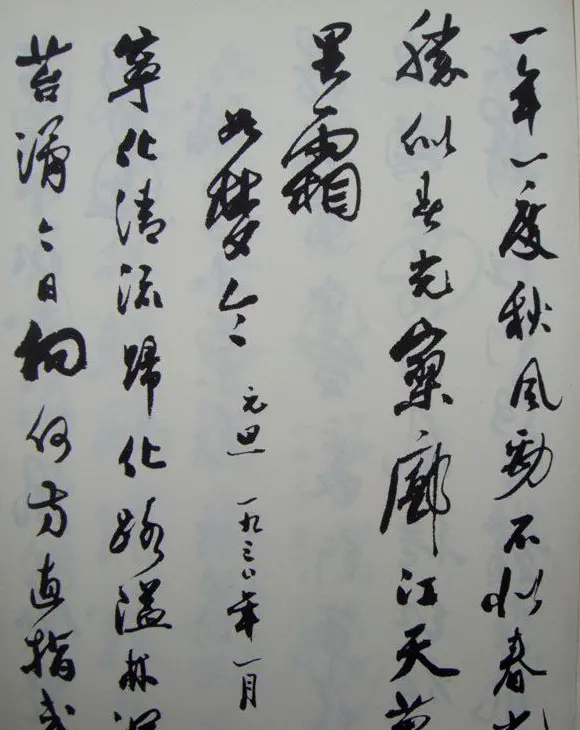 一年一度秋风劲不似春光
勝似春光寥廓江天萬
里霜
如梦令 元旦 一九三〇年一月
寧化清流歸化路隘林深
苔滑今日向何方直指武